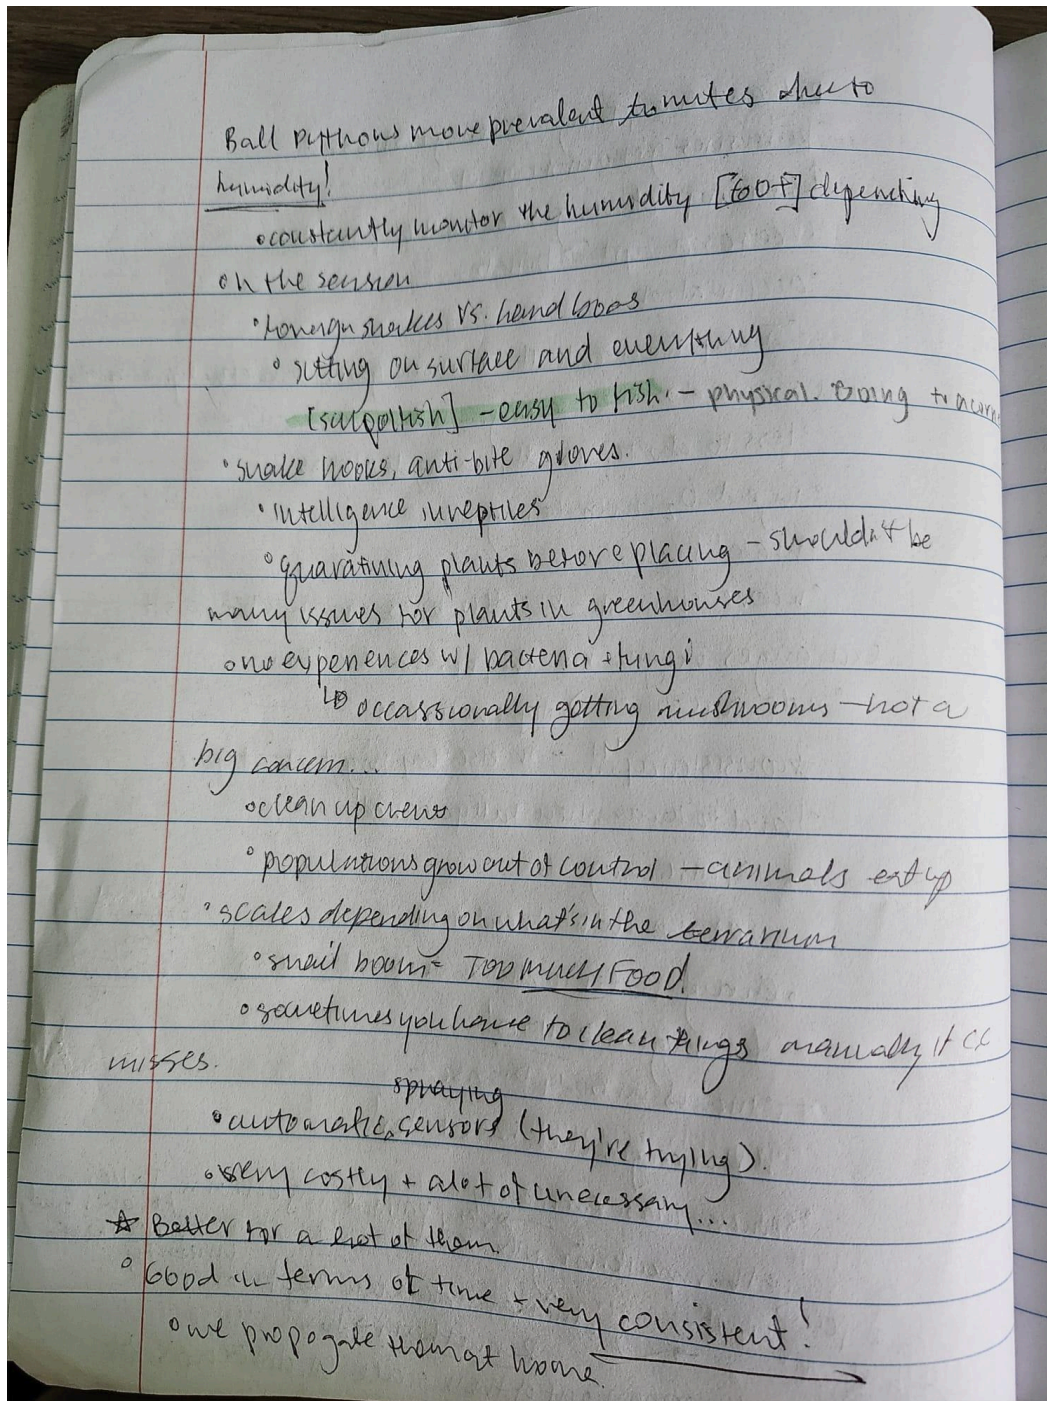 Ball pythons more prevalent to mites due to
humidity!
• constantly monitor the humidity depending
on the
• snakes vs. hand boas
• sitting on surface and everything
- easy to fish. - physical. Going to a corn
• snake hooks, anti-bite gloves.
• intelligence in reptiles
• quaratining plants before placing - shouldn't be
many issues for plants in greenhouses
• no experiences w/ bacteria + fungi
↳ occassionally getting mushrooms - not a
big concern...
• clean up crews
• populations grow out of control - animals eat up
• scales depending on what's in the terrarium
• snail boom = TOO MUCH FOOD.
• sometimes you have to clean things manually if CC
misses.
spraying
• automatic sensors (they're trying).
• very costly + alot of unecessary...
☆ Better for a lot of them.
• Good in terms of time + very consistent!
• we propogate them at home.